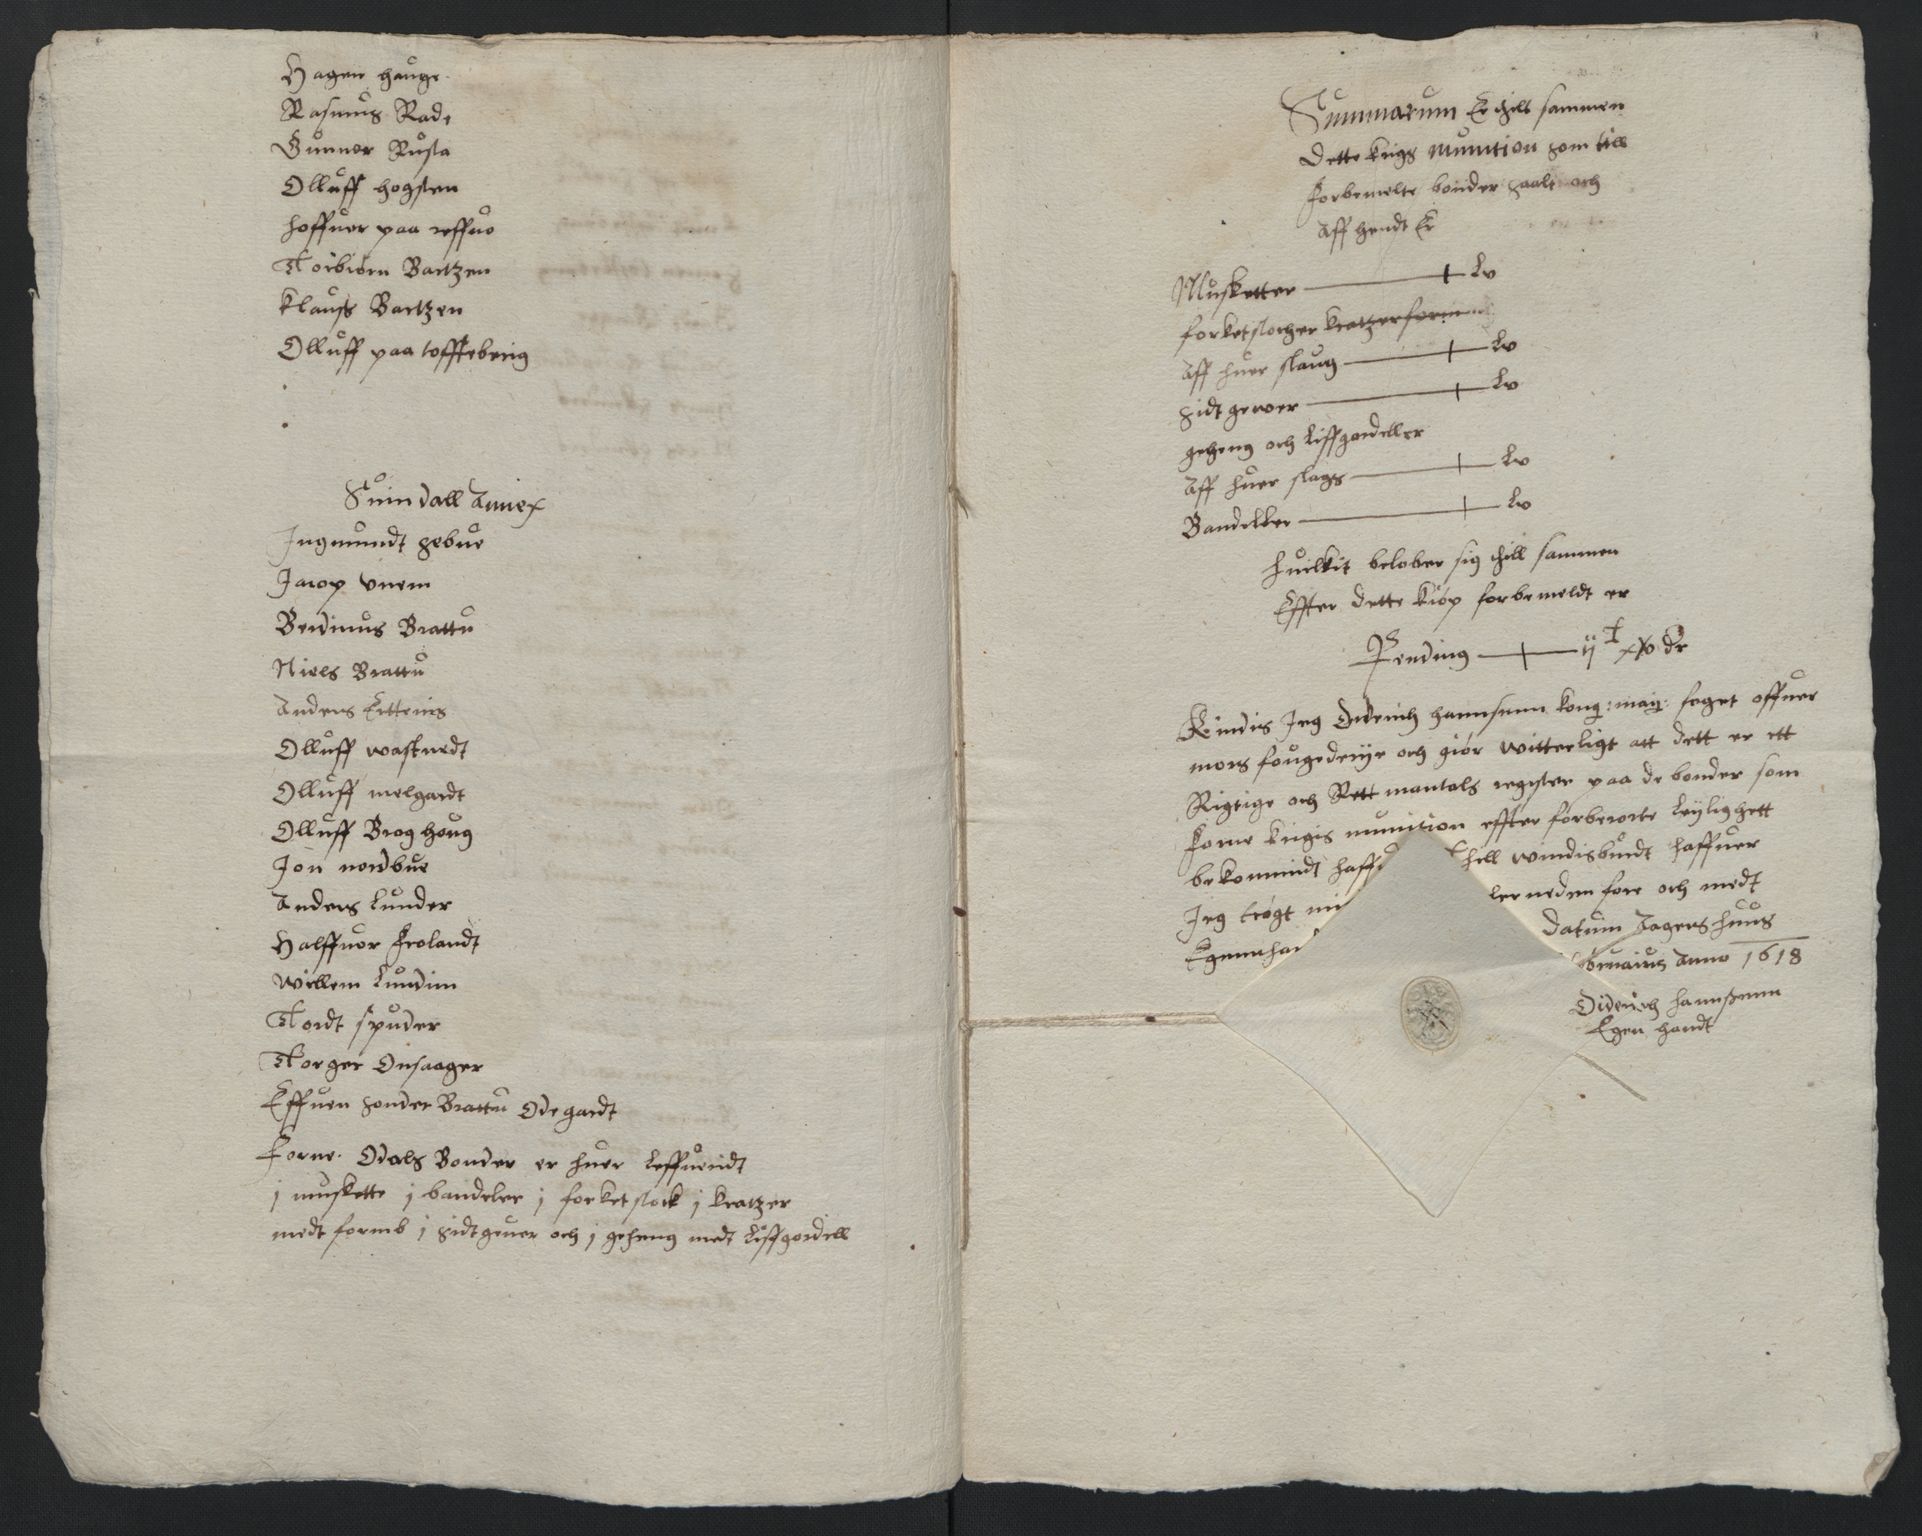 Hagen hauge
Rasmus Rade
Gunner Rusta
Olluff hogsten
hoffuer paa reffuo
Torbiørn Bartzen
Klauss Bartzen
Olluff paa tofftebering
Suindall Annex
Ingmundt gebue
Jacop Vnem
Berdinus Brattu
Niels Brattu
Anders
Olluff wastuedt
Olluff melgardt
Olluff Brog houg
Jon nordbue
Anders Lunder
Halffuor Frolandt
Willem Lundim
Tordt spuder
Torger Onsaager
Effuen sonder Brattu Ødegardt
Forne. Odals Bonder er huer Leffueridt
j muskette j bandeler j forketstock j kratzer
medt formb j sidtgeuer och j geheng medt Liffgordell
Summarum Er thill sammen
Dette krigs munition som till
forbemelte bonder saalt och
Aff hendt Er
Musketter Lv
forketstocker kratzer form
Aff huer slaug Lv
sidt gewer Lv
geheng och Liffgordeller
Aff huer slags Lv
Bandeller Lv
huilkit belober sig thill sammen
Effter dette kiøp forbemeldt er
Pending ij c xx dr
Kindis Jeg Diderich hannsenn kong: may: foget offuer
mors fougderiye och giør witterligt att dett er ett
Rigtige och Rett mantals register paa de bonder som
forne krigis munition effter forberorte Leyligheett
bekommidt haff thill windisburdt haffuer
Jeg trøgt mi ner neden fore och medt
Egennhan Datum Agers huus
bruarius Anno 1618
Diderich hannssenn
Egen handt